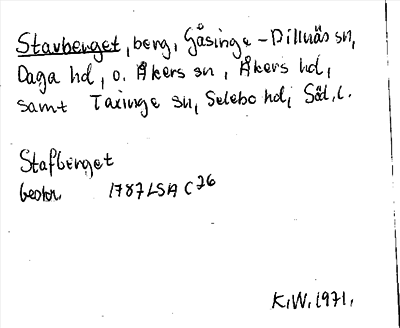 Stavberget, berg, Gåsinge-Dillnäs sn,
Daga hd, o. Åkers sn, Åkers hd,
samt Taxinge sn, Selebo hd, Söd. l.
Stafberget
beskr. 1787 LSA C26
K.W. 1971.